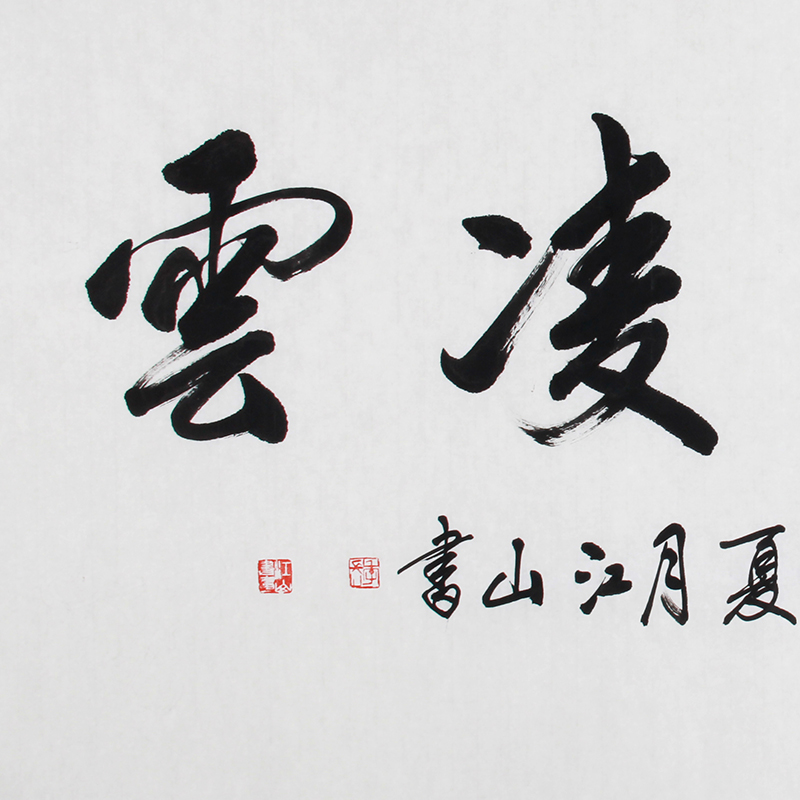 凌雲
夏月江山書